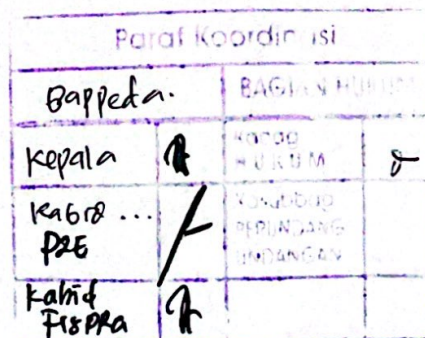 Paraf Koordinasi
Bappeda.
BAGIAN HUKUM
Kepala
Kabag
HUKUM
Kabid ...
P2E
Kasubbag
PERUNDANG
UNDANGAN
Kabid
FISPRA